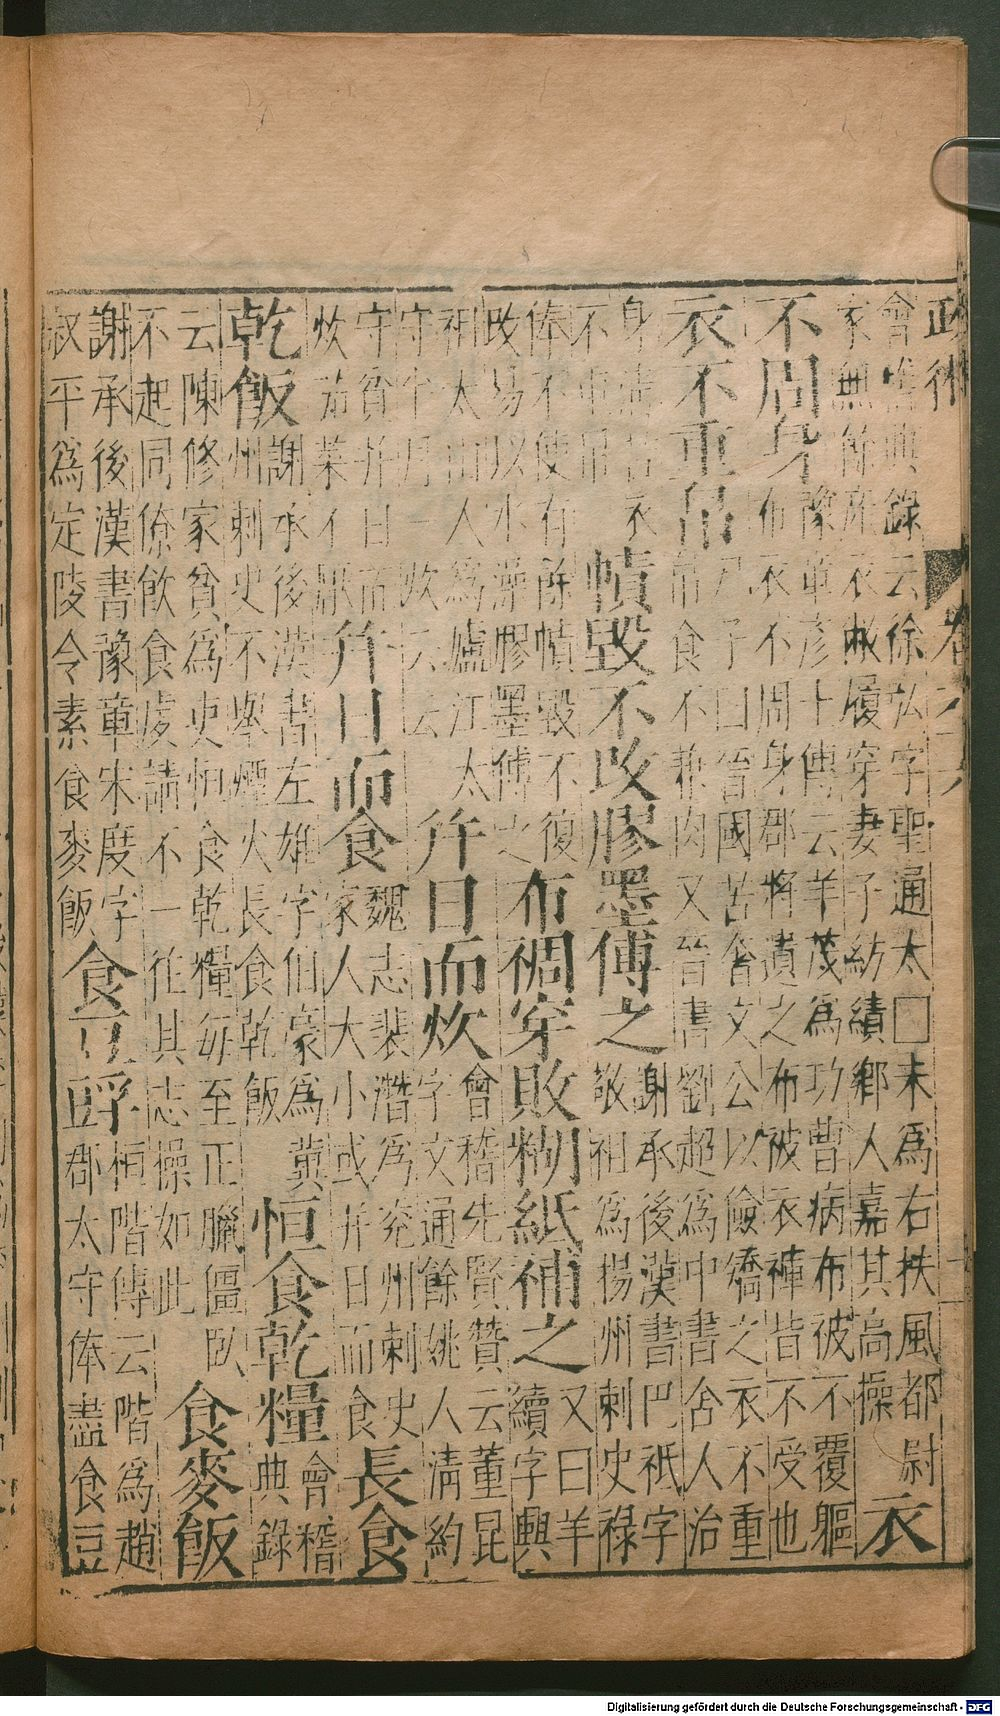 政術
會稽典錄云徐弘字聖通太□末爲右扶風都尉
家無餘産衣敝履穿妻子紡績鄉人嘉其高操
衣
不周身
豫章彦十傳云羊茂爲功曹病布被不覆軀
布衣不周身郡將遺之布被衣褲皆不受也
衣不重帛
尹子曰晉國苦奢文公以儉矯之衣不重
帛食不兼肉又晉書劉超爲中書舍人治
身清苦衣
不重帛
幘毀不改膠墨傅之
謝承後漢書巴祇字
敬祖爲揚州刺史祿
俸不使有餘幘毀不復
改易以水澡膠墨傅之
布裯穿敗糊紙補之
又曰羊
續字興
祖太山人爲廬江太
守十月一炊云云
幷日而炊
會稽先賢贊云董昆
字文通餘姚人淸約
守貧幷日而
炊茹菜不厭
幷日而食
魏志裴潛爲兖州刺史
家人大小或幷日而食
長食
乾飯
謝承後漢書左雄字伯豪爲冀
州刺史不舉煙火長食乾飯
恒食乾糧
會稽
典錄
云陳修家貧爲吏恒食乾糧每至正臘僵臥
不起同僚飲食處請不一往其志操如此
食麥飯
謝承後漢書豫章宋度字
叔平爲定陵令素食麥飯
食豆
桓階傳云階爲趙
郡太守俸盡食豆
Digitalisierung gefördert durch die Deutsche Forschungsgemeinschaft - DFG